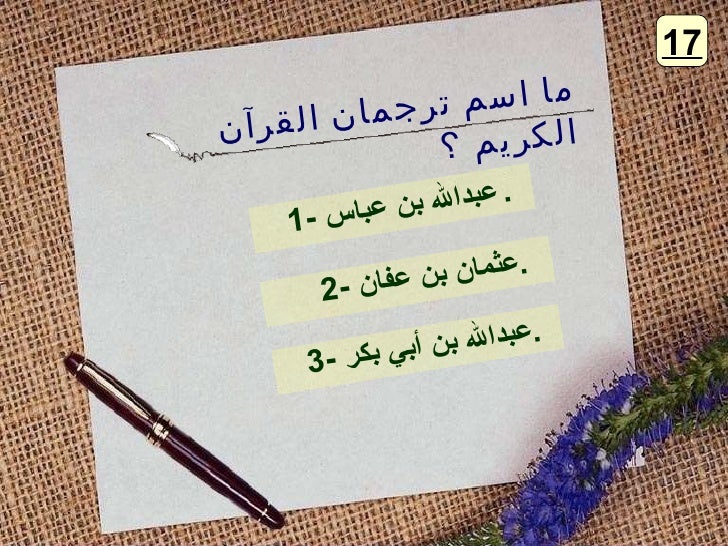 17
ما اسم ترجمان القرآن
الكريم ؟
1- عبدالله بن عباس .
2- عثمان بن عفان.
3- عبدالله بن أبي بكر.